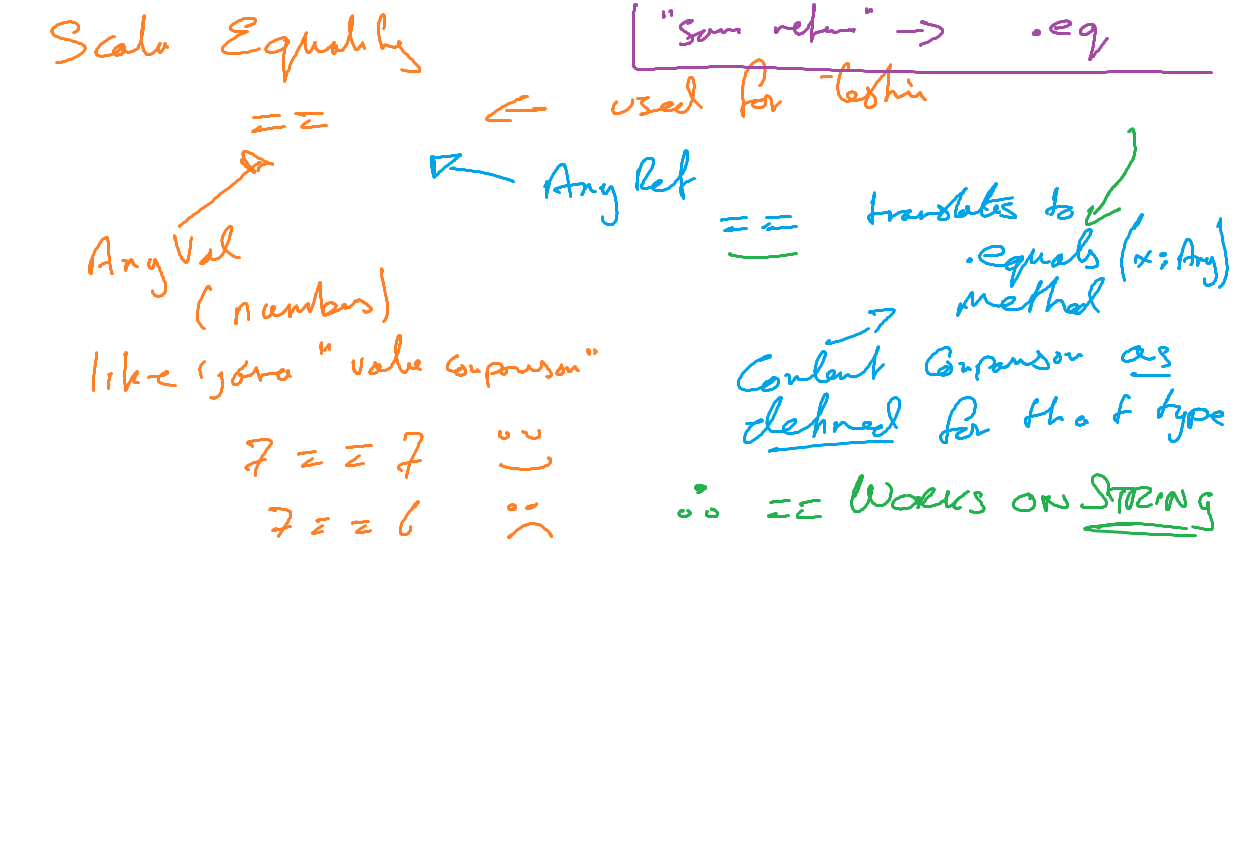 Scala Equality
"Same refere" -> .eq
== <- used for testin
AnyRef
AnyVal
(numbers)
like java "value comparison"
7 == 7
7 == 6
== translates to
.equals(x: Any)
method
Content Comparison as
defined for that type
∴ == WORKS ON STRING